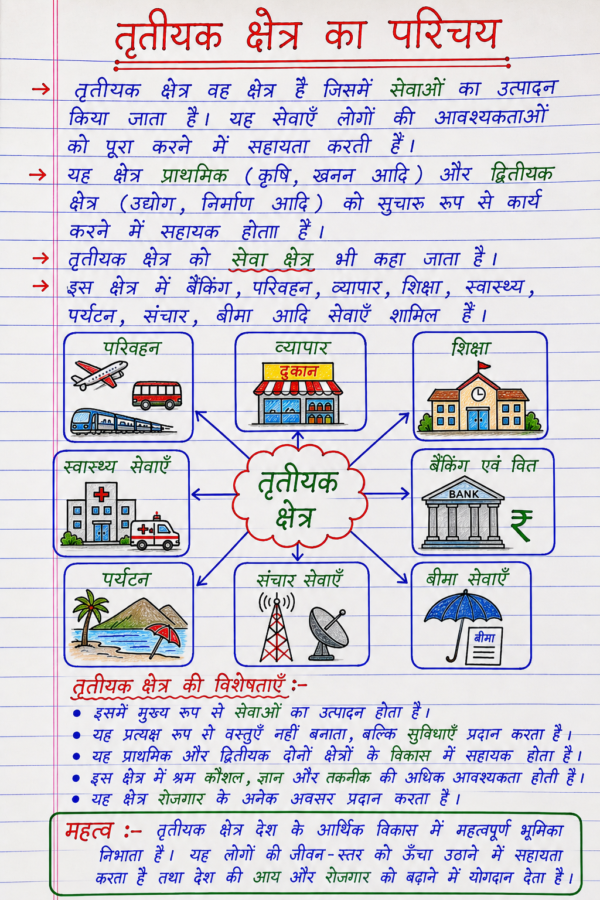 तृतीयक क्षेत्र का परिचय
→ तृतीयक क्षेत्र वह क्षेत्र है जिसमें सेवाओं का उत्पादन
किया जाता है। यह सेवाएँ लोगों की आवश्यकताओं
को पूरा करने में सहायता करती हैं।
→ यह क्षेत्र प्राथमिक (कृषि, खनन आदि) और द्वितीयक
क्षेत्र (उद्योग, निर्माण आदि) को सुचारु रुप से कार्य
करने में सहायक होताा है।
→ तृतीयक क्षेत्र को सेवा क्षेत्र भी कहा जाता है।
→ इस क्षेत्र में बैंकिंग, परिवहन, व्यापार, शिक्षा, स्वास्थ्य,
पर्यटन, संचार, बीमा आदि सेवाएँ शामिल हैं।
परिवहन
व्यापार
दुकान
शिक्षा
स्वास्थ्य सेवाएँ
तृतीयक
क्षेत्र
बैंकिंग एवं वित
BANK
₹
पर्यटन
संचार सेवाएँ
बीमा सेवाएँ
बीमा
तृतीयक क्षेत्र की विशेषताएँ :-
• इसमें मुख्य रुप से सेवाओं का उत्पादन होता है।
• यह प्रत्यक्ष रुप से वस्तुएँ नहीं बनाता, बल्कि सुविधाएँ प्रदान करता है।
• यह प्राथमिक और द्वितीयक दोनों क्षेत्रों के विकास में सहायक होता है।
• इस क्षेत्र में श्रम कौशल, ज्ञान और तकनीक की अधिक आवश्यकता होती है।
• यह क्षेत्र रोजगार के अनेक अवसर प्रदान करता है।
महत्व :- तृतीयक क्षेत्र देश के आर्थिक विकास में महत्वपूर्ण भूमिका
निभाता है। यह लोगों की जीवन-स्तर को ऊँचा उठाने में सहायता
करता है तथा देश की आय और रोजगार को बढ़ाने में योगदान देता है।